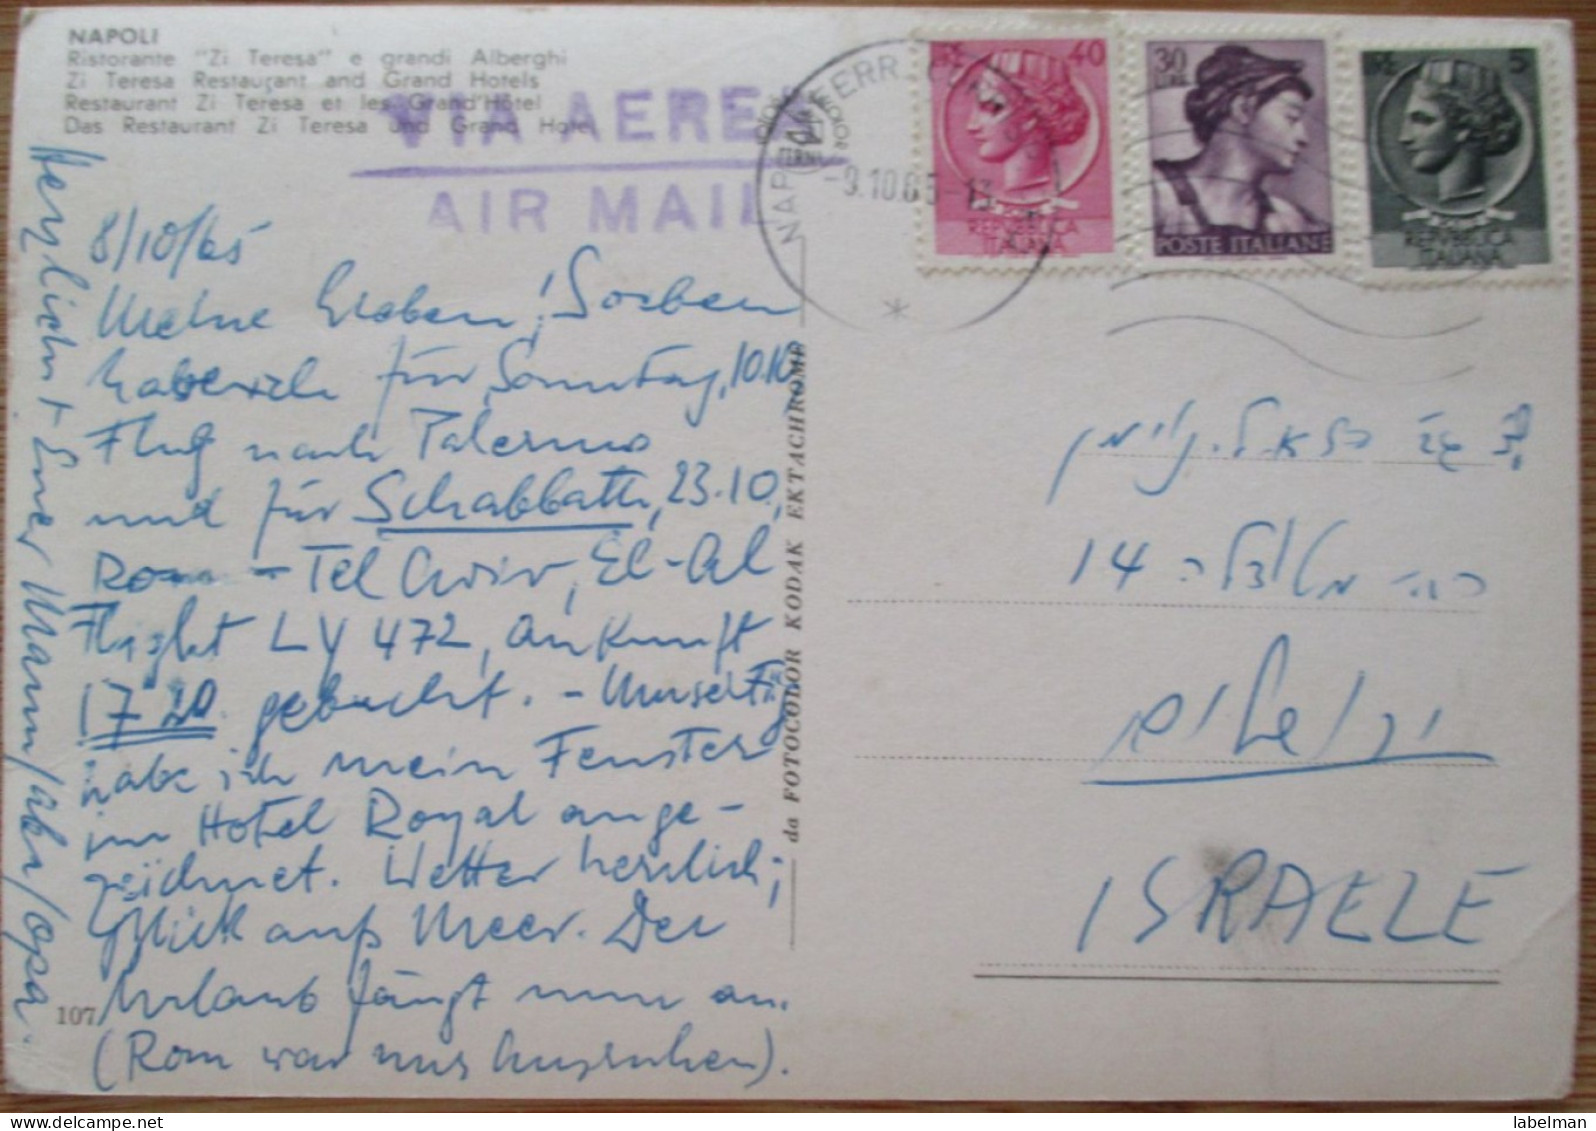 NAPOLI
Ristorante "Zi Teresa" e grandi Alberghi
Zi Teresa Restaurant and Grand Hotels
Restaurant Zi Teresa et les Grand Hôtel
Das Restaurant Zi Teresa und Grand Hotel
VIA AEREA
AIR MAIL
-9.10.65-13
LIRE 40
REPUBBLICA
ITALIANA
30
LIRE
POSTE ITALIANE
LIRE 5
REPUBBLICA
ITALIANA
8/10/65
Meine Lieben! Soeben
habe ich für Sonntag, 10.10
Flug nach Palermo
und für Schabbath, 23.10,
Rom - Tel Aviv, El-Al
Flight LY 472, Ankunft
17 20 gebucht. -
habe ich mein Fenster
im Hotel Royal ange-
zeichnet. Wetter herrlich;
Blick aufs Meer. Der
Urlaub fängt nun an.
(Rom war nur Ausruhen).
Herzlichst Euer Mann/Aba/Opa.
107
da FOTOCOLOR KODAK EKTACHROME
14
ירושלים
ISRAELE